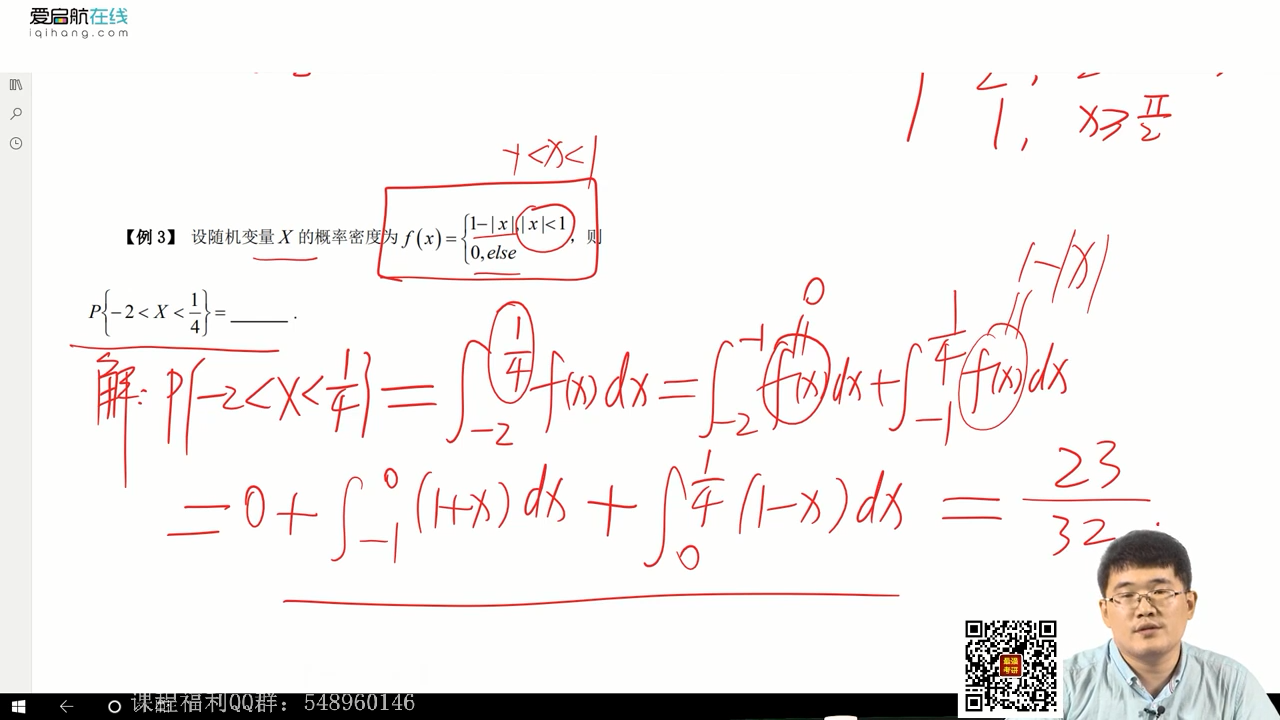 爱启航在线
iqihang.com
1, x≥π/2
-1<x<1
【例 3】 设随机变量 X 的概率密度为 f(x)={1-|x|,|x|<1 0,else ,则
P{-2<X<1/4}=______.
0
1-|x|
解: P{-2<X<1/4}=∫_{-2}^{1/4} f(x)dx=∫_{-2}^{-1} f(x)dx+∫_{-1}^{1/4} f(x)dx
=0+∫_{-1}^{0}(1+x)dx+∫_{0}^{1/4}(1-x)dx=23/32.
最强
考研
课程福利QQ群：548960146